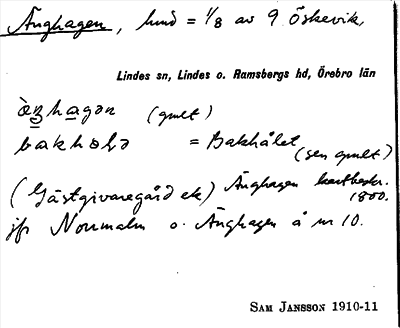 Änghagen, hmd = 1/8 av 9 Öskevik,
Lindes sn, Lindes o. Ramsbergs hd, Örebro län
(gmlt)
= Bakhålet
(sen gmlt)
(Gästgivaregård ek) Änghagen kartbeskr.
1800.
jfr Norrmalm o. Änghagen å nr 10.
SAM JANSSON 1910-11